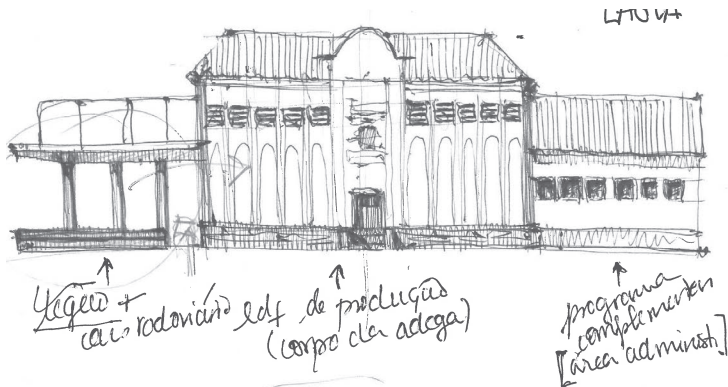 cais rodoviário
edf de produção
(corpo da adega)
programa
complementar
[área administ.]